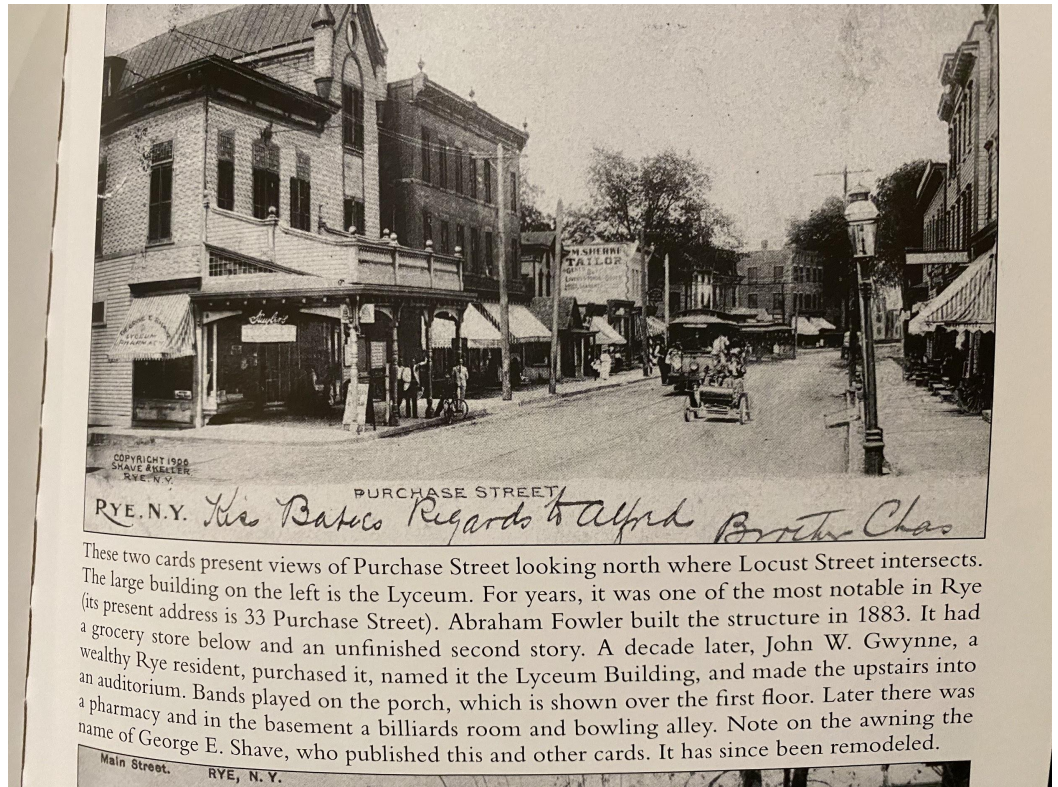 GEORGE E. SHAVE
LYCEUM
PHARMACY
Huyler's
M. SHERRI
TAILOR
COPYRIGHT 1906
SHAVE & KELLER
RYE, N.Y.
PURCHASE STREET
RYE, N.Y. Kiss Babies Regards to Alfred Brother Chas
These two cards present views of Purchase Street looking north where Locust Street intersects.
The large building on the left is the Lyceum. For years, it was one of the most notable in Rye
(its present address is 33 Purchase Street). Abraham Fowler built the structure in 1883. It had
a grocery store below and an unfinished second story. A decade later, John W. Gwynne, a
wealthy Rye resident, purchased it, named it the Lyceum Building, and made the upstairs into
an auditorium. Bands played on the porch, which is shown over the first floor. Later there was
a pharmacy and in the basement a billiards room and bowling alley. Note on the awning the
name of George E. Shave, who published this and other cards. It has since been remodeled.
Main Street. RYE, N. Y.